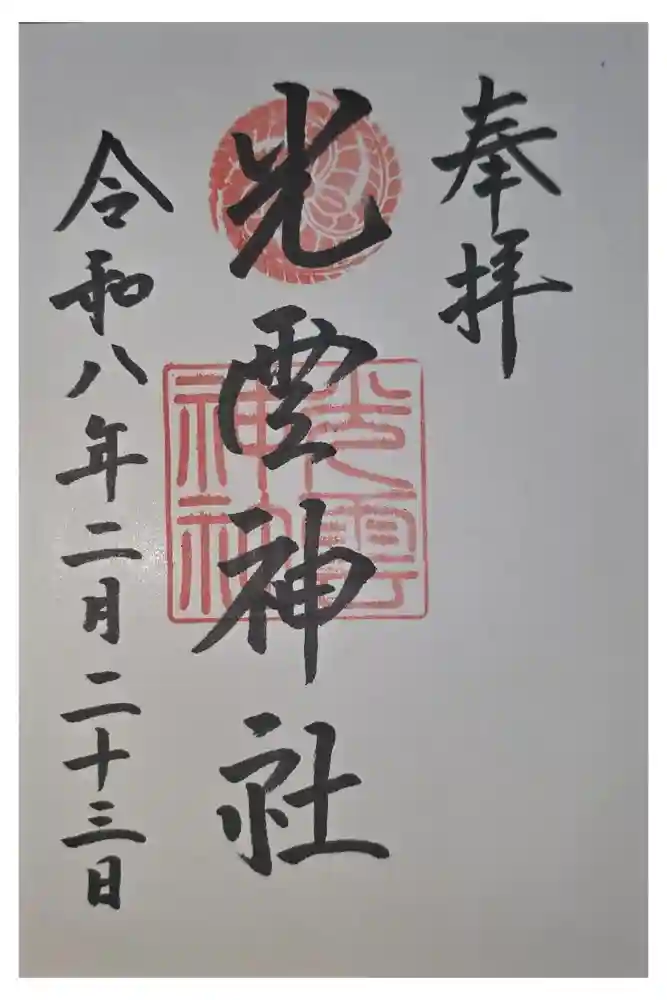 奉拝
光雲神社
光雲
神社
令和八年二月二十三日